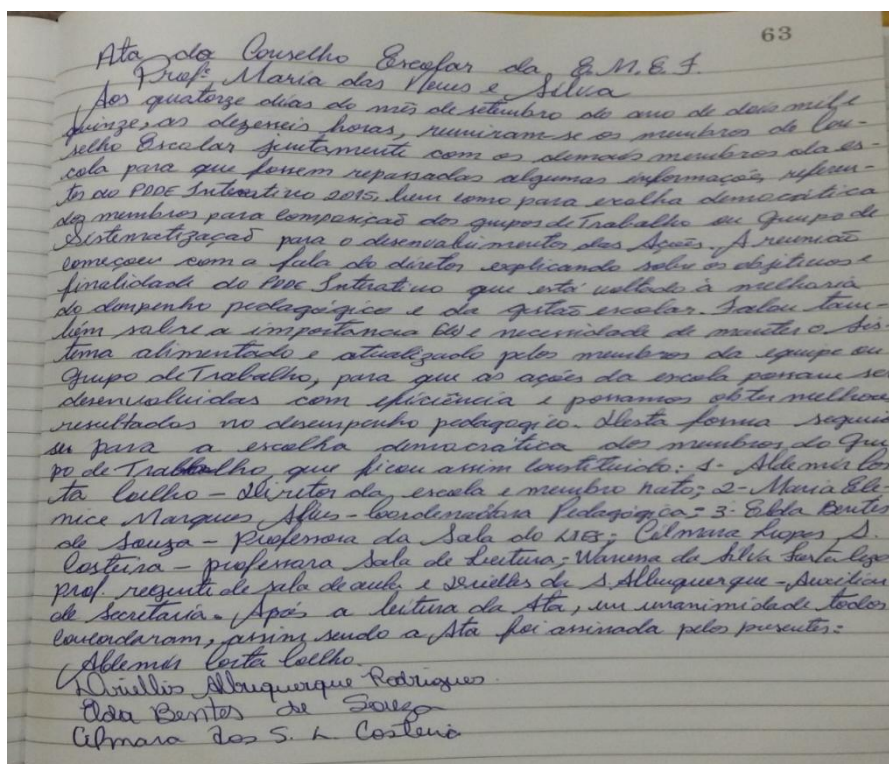 63
Ata do Conselho Escolar da E.M.E.F.
Profª Maria das Neves e Silva
Aos quatorze dias do mês de setembro do ano de dois mil e
quinze, as dezesseis horas, reuniram-se os membros do Con-
selho Escolar juntamente com os demais membros da es-
cola para que fossem repassadas algumas informações referen-
tes ao PDDE Interativo 2015, bem como para escolha democrática
dos membros para composição dos grupos de Trabalho ou Grupo de
Sistematização para o desenvolvimentos das Ações. A reunião
começou com a fala do diretor explicando sobre os objetivos e
finalidade do PDDE Interativo que está voltado à melhoria
do dempenho pedagógico e da gestão escolar. Falou tam-
bém sobre a importancia e necessidade de manter o Sis-
tema alimentado e atualizado pelos membros da equipe ou
Grupo de Trabalho, para que as ações da escola possam ser
desenvolvidas com eficiência e possamos obter melhores
resultados no desempenho pedagogico. Desta forma seguiu
se para a escolha democrática dos membros do Gru-
po de Trabalho que ficou assim constituido: 1- Aldemir Cos-
ta Coelho - Diretor da escola e membro nato; 2- Maria Ele-
nice Marques Alves - Coordenadora Pedagógica; 3- Elda Bentes
de Souza - Professora da Sala do LIED; Cilmara Lopes S.
Costeira - professora Sala de Leitura; da Silva
prof. regente de sala de aula e Drielles da S. Albuquerque - Auxiliar
de Secretaria. Após a leitura da Ata, em unanimidade todos
concordaram, assim sendo a Ata foi assinada pelos presentes:
Aldemir Costa Coelho.
Albuquerque Rodrigues.
Elda Bentes de Souza
Cilmara dos S. L. Costeira